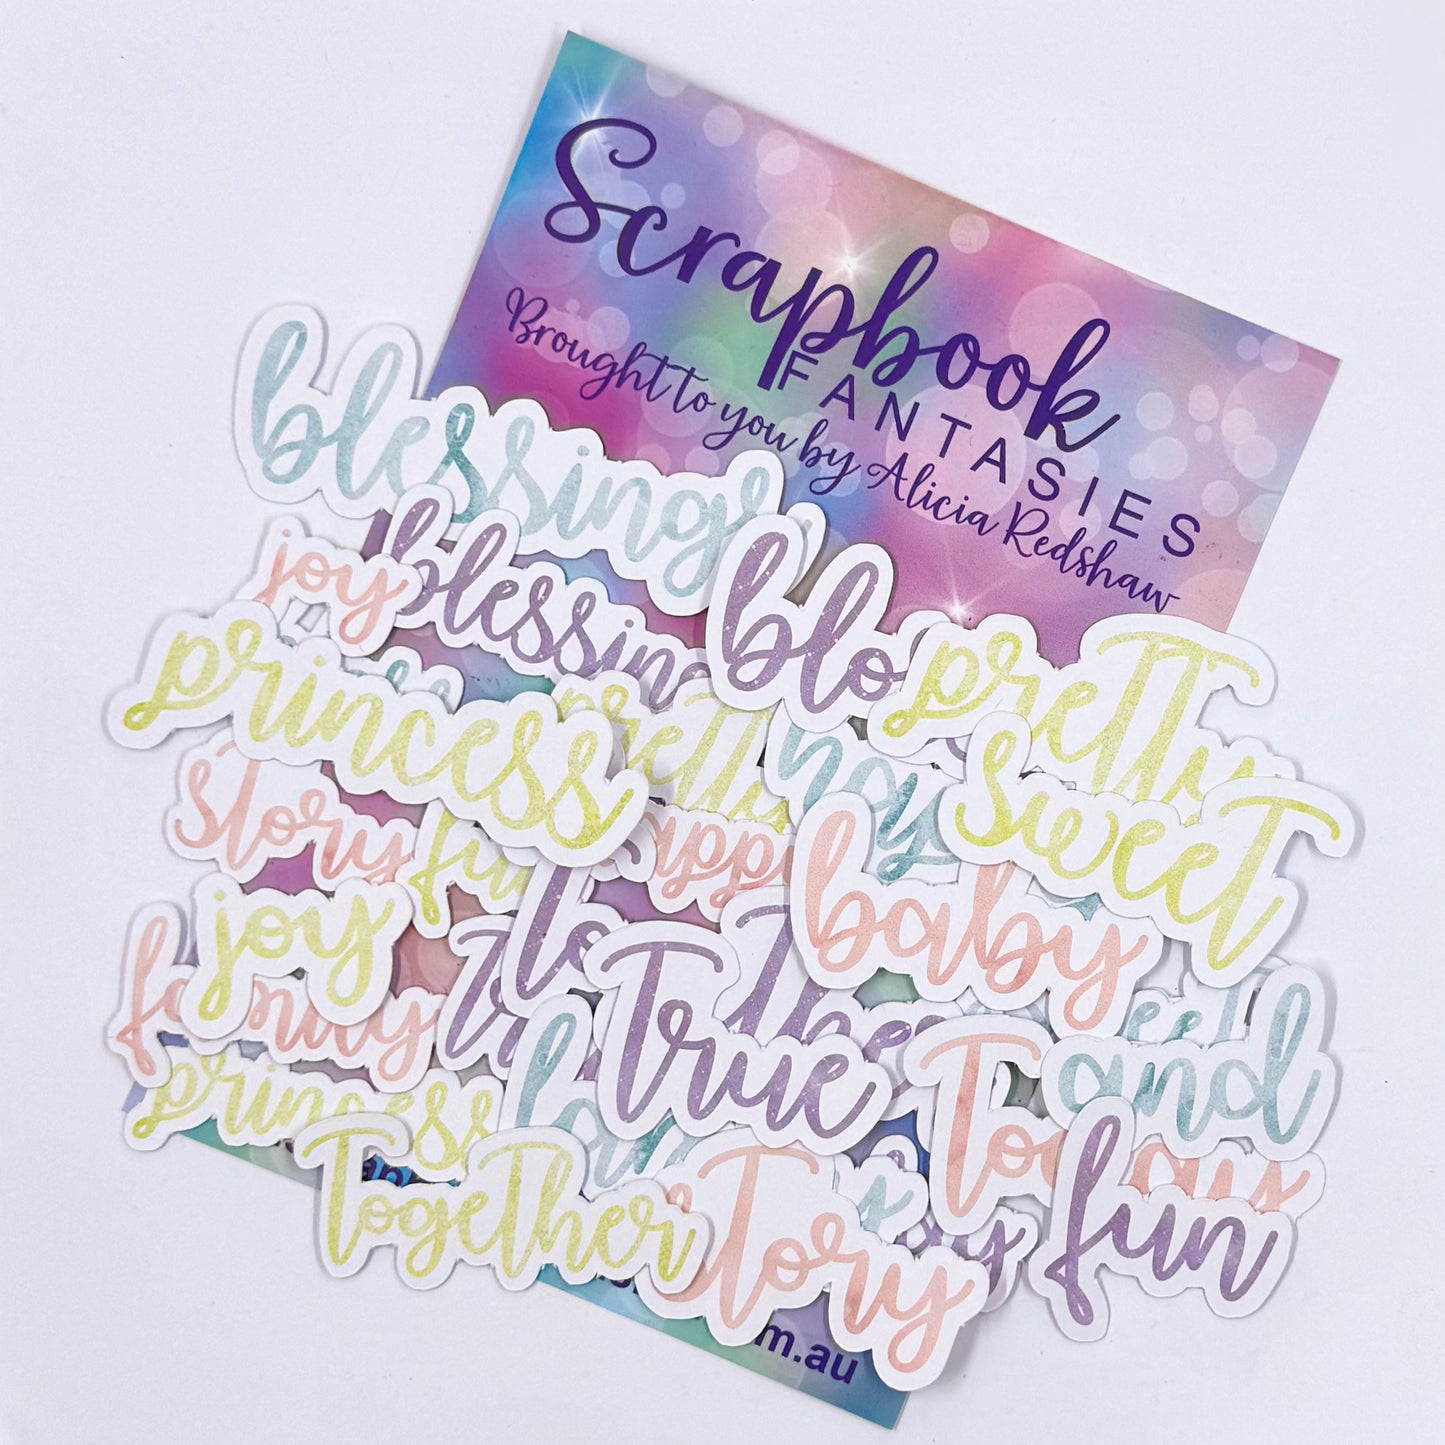 Scrapbook
FANTASIES
Brought to you by Alicia Redshaw
blessings
joy
blessing
blo
pretty
princess
pretty
sweet
story
fun
happy
baby
joy
family
true
the
and
princess
together
today
fun
story
.au